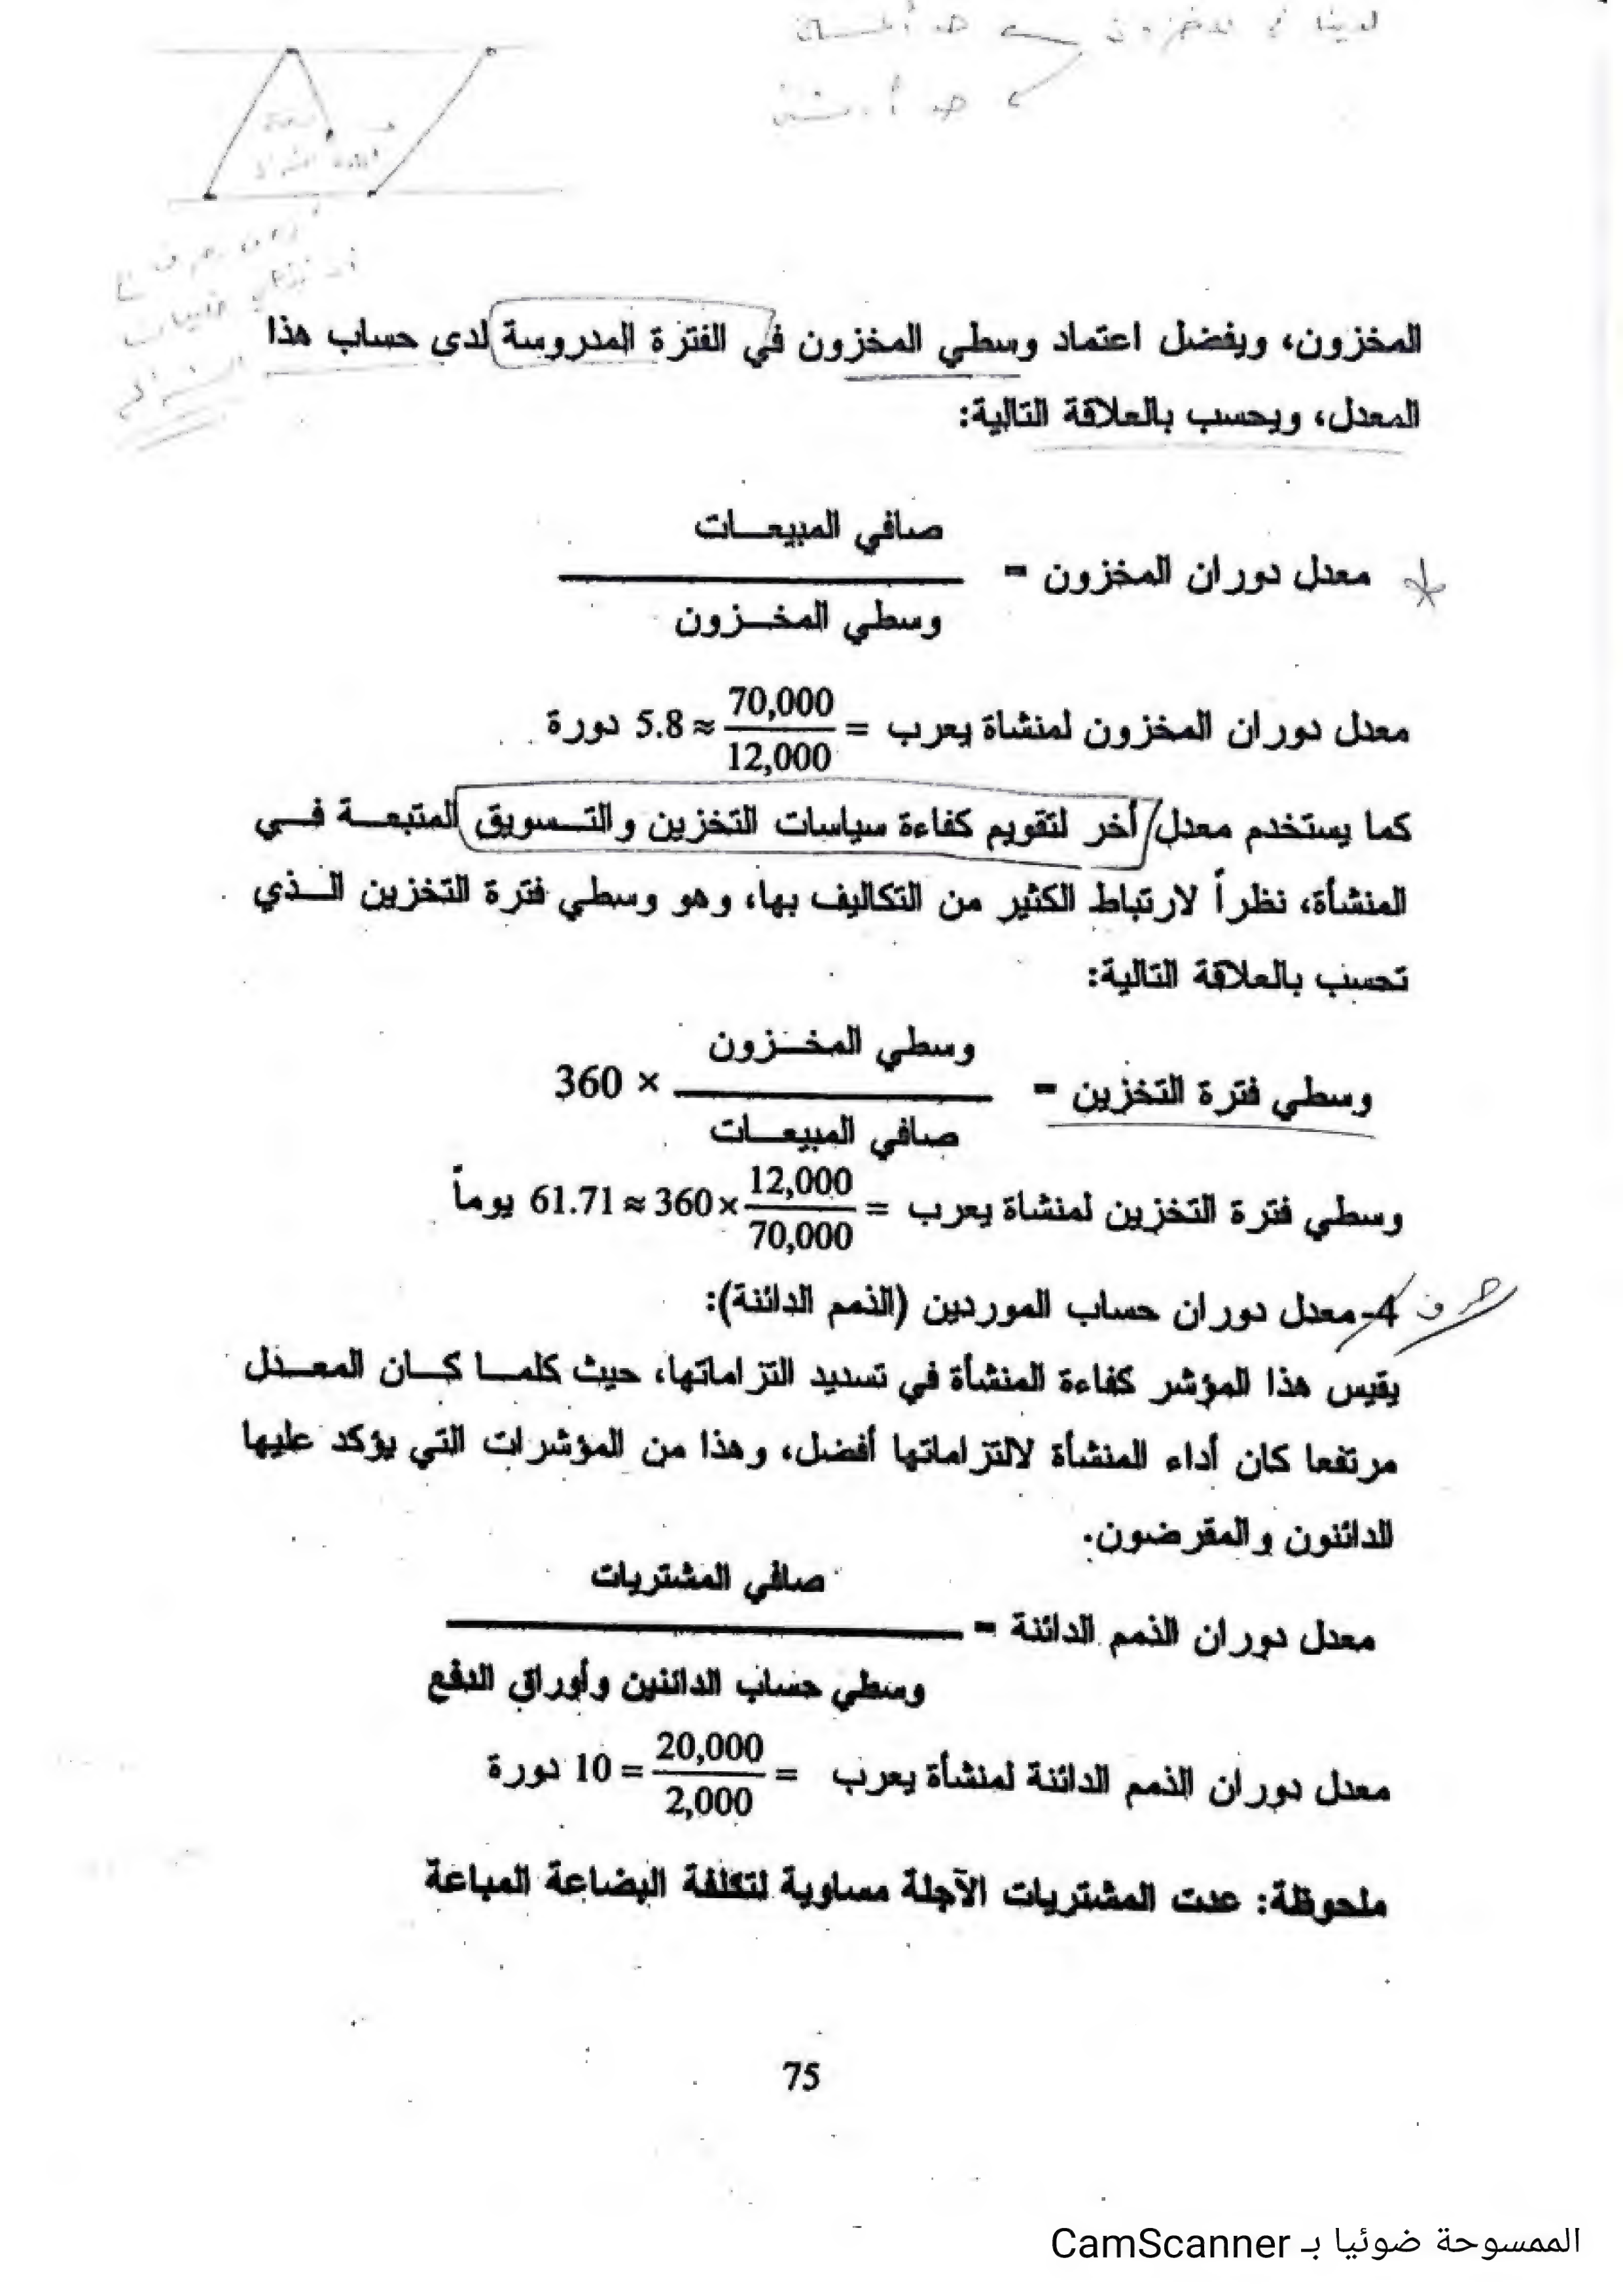 لدينا في المخزون
حد أ
حد أ
المخزون، ويفضل اعتماد وسطي المخزون في الفترة المدروسة لدى حساب هذا
المعدل، ويحسب بالعلاقة التالية:
صافي المبيعـــات
معدل دوران المخزون =
وسطي المخــزون
معدل دوران المخزون لمنشاة يعرب = 70,000/12,000 ≈ 5.8 دورة
كما يستخدم معدل أخر لتقويم كفاءة سياسات التخزين والتـــسويق المتبعـــة فـــي
المنشأة، نظراً لارتباط الكثير من التكاليف بها، وهو وسطي فترة التخزين الـــذي
تحسب بالعلاقة التالية:
وسطي المخــزون
وسطي فترة التخزين = × 360
صافي المبيعـــات
وسطي فترة التخزين لمنشاة يعرب = 12,000/70,000 ×360 ≈ 61.71 يوماً
4-معدل دوران حساب الموردين (الذمم الدائنة):
يقيس هذا المؤشر كفاءة المنشأة في تسديد التزاماتها، حيث كلمـــا كـــان المعـــدل
مرتفعا كان أداء المنشأة لالتزاماتها أفضل، وهذا من المؤشرات التي يؤكد عليها
الدائنون والمقرضون.
صافي المشتريات
معدل دوران الذمم الدائنة =
وسطي حساب الدائنين وأوراق الدفع
معدل دوران الذمم الدائنة لمنشأة يعرب = 20,000/2,000 = 10 دورة
ملحوظة: عدت المشتريات الآجلة مساوية لتكلفة البضاعة المباعة
75
الممسوحة ضوئيا بـ CamScanner